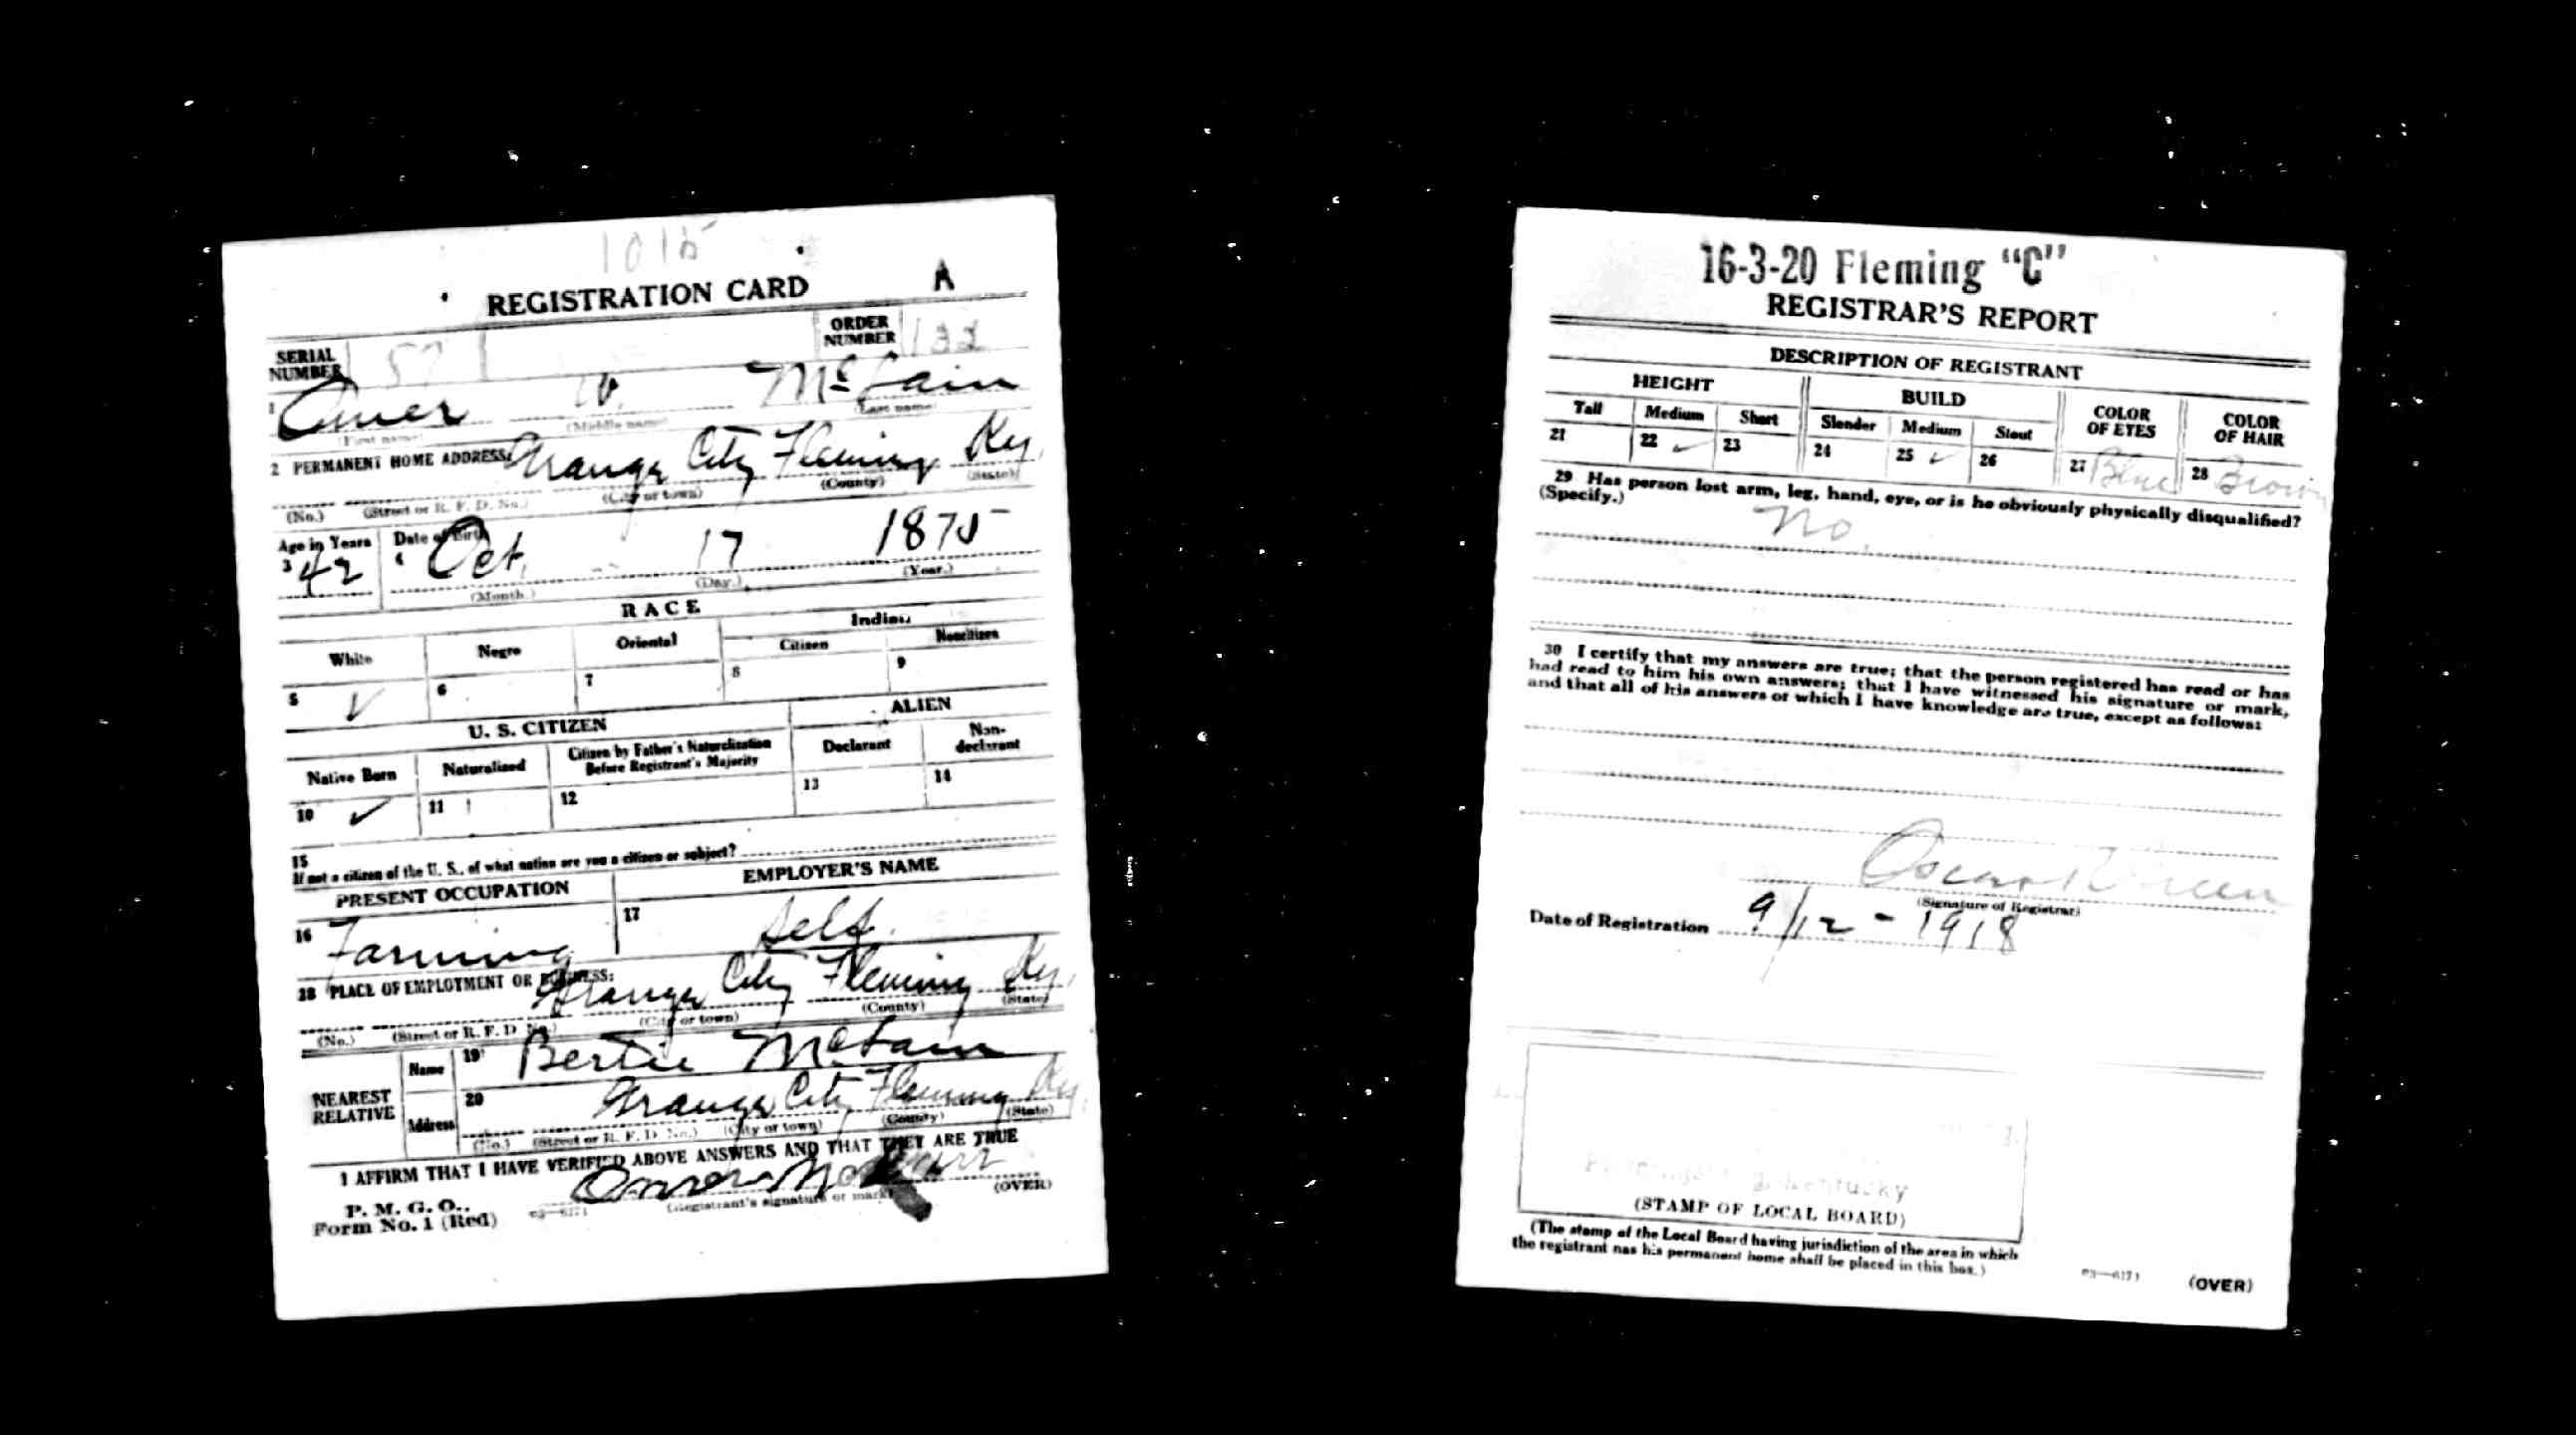 1015
REGISTRATION CARD A
SERIAL NUMBER 57 ORDER NUMBER 132
1 Omer W. McCain
(First name) (Middle name) (Last name)
2 PERMANENT HOME ADDRESS: Grange City Fleming Ky.
(No.) (Street or R. F. D. No.) (City or town) (County) (State)
Age in Years Date of Birth
3 42 4 Oct. 17 1875
(Month.) (Day.) (Year.)
RACE
White Negro Oriental Indian
Citizen Noncitizen
5 ✓ 6 7 8 9
U. S. CITIZEN ALIEN
Native Born Naturalized Citizen by Father's Naturalization Before Registrant's Majority Declarant Non-declarant
10 ✓ 11 12 13 14
15
If not a citizen of the U. S., of what nation are you a citizen or subject?
PRESENT OCCUPATION EMPLOYER'S NAME
16 Farming 17 Self.
18 PLACE OF EMPLOYMENT OR BUSINESS: Grange City Fleming Ky.
(No.) (Street or R. F. D. No.) (City or town) (County) (State)
NEAREST RELATIVE
Name 19 Bertie McCain
Address 20 Grange City Fleming Ky.
(No.) (Street or R. F. D. No.) (City or town) (County) (State)
I AFFIRM THAT I HAVE VERIFIED ABOVE ANSWERS AND THAT THEY ARE TRUE
P. M. G. O.
Form No. 1 (Red) 03—6171 (Registrant's signature or mark) (OVER)
16-3-20 Fleming "C"
REGISTRAR'S REPORT
DESCRIPTION OF REGISTRANT
HEIGHT BUILD COLOR OF EYES COLOR OF HAIR
Tall Medium Short Slender Medium Stout
21 22 ✓ 23 24 25 ✓ 26 27 Blue 28 Brown
29 Has person lost arm, leg, hand, eye, or is he obviously physically disqualified?
(Specify.) No.
30 I certify that my answers are true; that the person registered has read or has
had read to him his own answers; that I have witnessed his signature or mark,
and that all of his answers of which I have knowledge are true, except as follows:
Oscar
(Signature of Registrar)
Date of Registration 9/12-1918
Kentucky
(STAMP OF LOCAL BOARD)
(The stamp of the Local Board having jurisdiction of the area in which
the registrant has his permanent home shall be placed in this box.)
03—6171 (OVER)